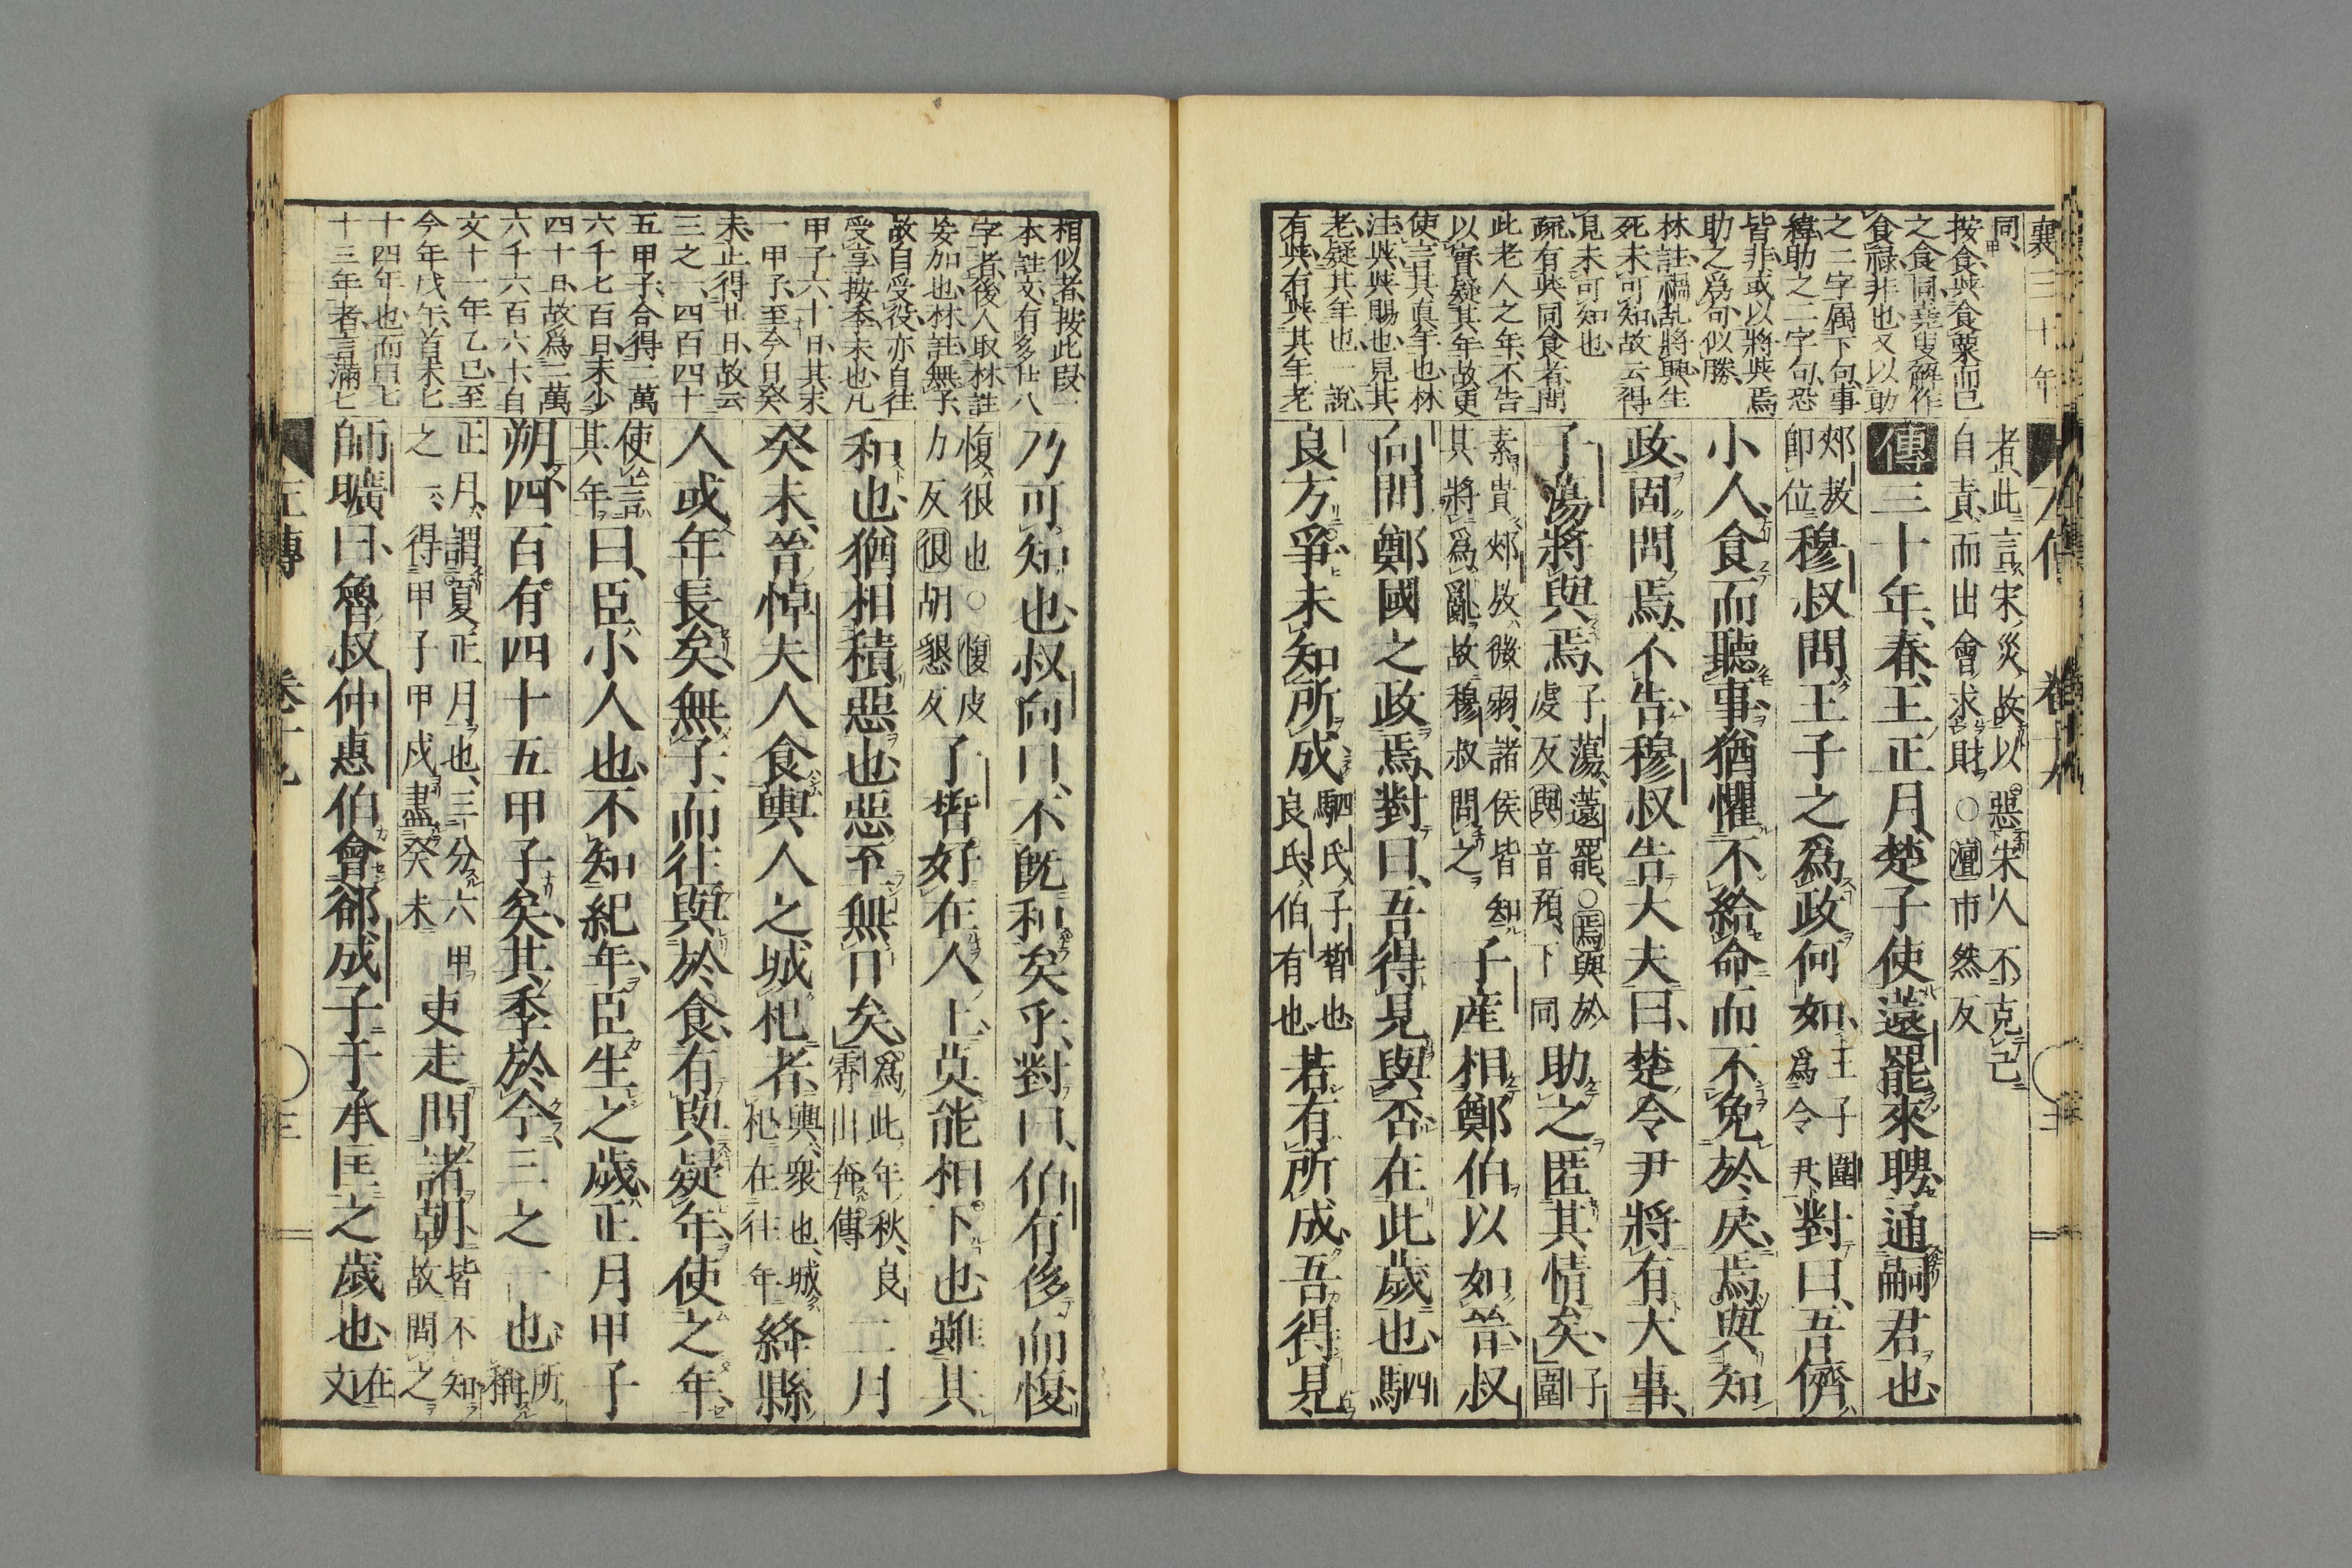 襄三十年
同、
按食與食粟而已
之食同堯叟解作
食祿非也又以助
之二字属下句事
緯助之二字句恐
皆非或以將與焉
助之爲句似勝、
林註搆乱將興生
死未可知故云得
見未可知也
疏有與同食者問
此老人之年不告
以實疑其年故更
使言其眞年也林
注與與賜也見其
老疑其年也一説
有與有與其年老
左傳 卷十九 三
者此言宋災故以惡宋人不克己
自責而出會求財○澶市然反
傳三十年春王正月楚子使薳罷來聘通嗣君也
郟敖即位穆叔問王子之爲政何如王子圍爲令尹對曰吾儕
小人食而聽事猶懼不給命而不免於戾焉與知
政固問焉不告穆叔告大夫曰楚令尹將有大事
子蕩將與焉子蕩薳罷○焉與於虔反與音預下同助之匿其情矣子圍
素貴郟敖微弱諸侯皆知其將爲亂故穆叔問之子產相鄭伯以如晉叔
向問鄭國之政焉對曰吾得見與否在此歲也駟
良方爭未知所成駟氏子晳也良氏伯有也若有所成吾得見
相似者按此段一
本註文有多什八
字者後人取林註
妄加也林註無子
故自受役亦自往
受享按季末也凡
甲子六十日其末
一甲子至今日癸
未止得廿日故云
三之一四百四十
五甲子合得二萬
六千七百日末少
四十日故爲二萬
六千六百六十自
文十一年乙巳至
今年戊午首末七
十四年也而曰七
十三年者言滿七
乃可知也叔向曰不既和矣乎對曰伯有侈而愎
愎很也○愎皮力反很胡懇反子晳好在人上莫能相下也雖其
和也猶相積惡也惡至無日矣爲此年秋良霄出奔傳二月
癸未晉悼夫人食輿人之城杞者輿衆也城杞在往年絳縣
人或年長矣無子而往與於食有與疑年使之年
使言其年曰臣小人也不知紀年臣生之歲正月甲子
朔四百有四十五甲子矣其季於今三之一也所稱
正月謂夏正月也三分六甲之一得甲子甲戌盡癸未吏走問諸朝皆不知故問之
師曠曰魯叔仲惠伯會郤成子于承匡之歲也在文
左傳 卷十九 三